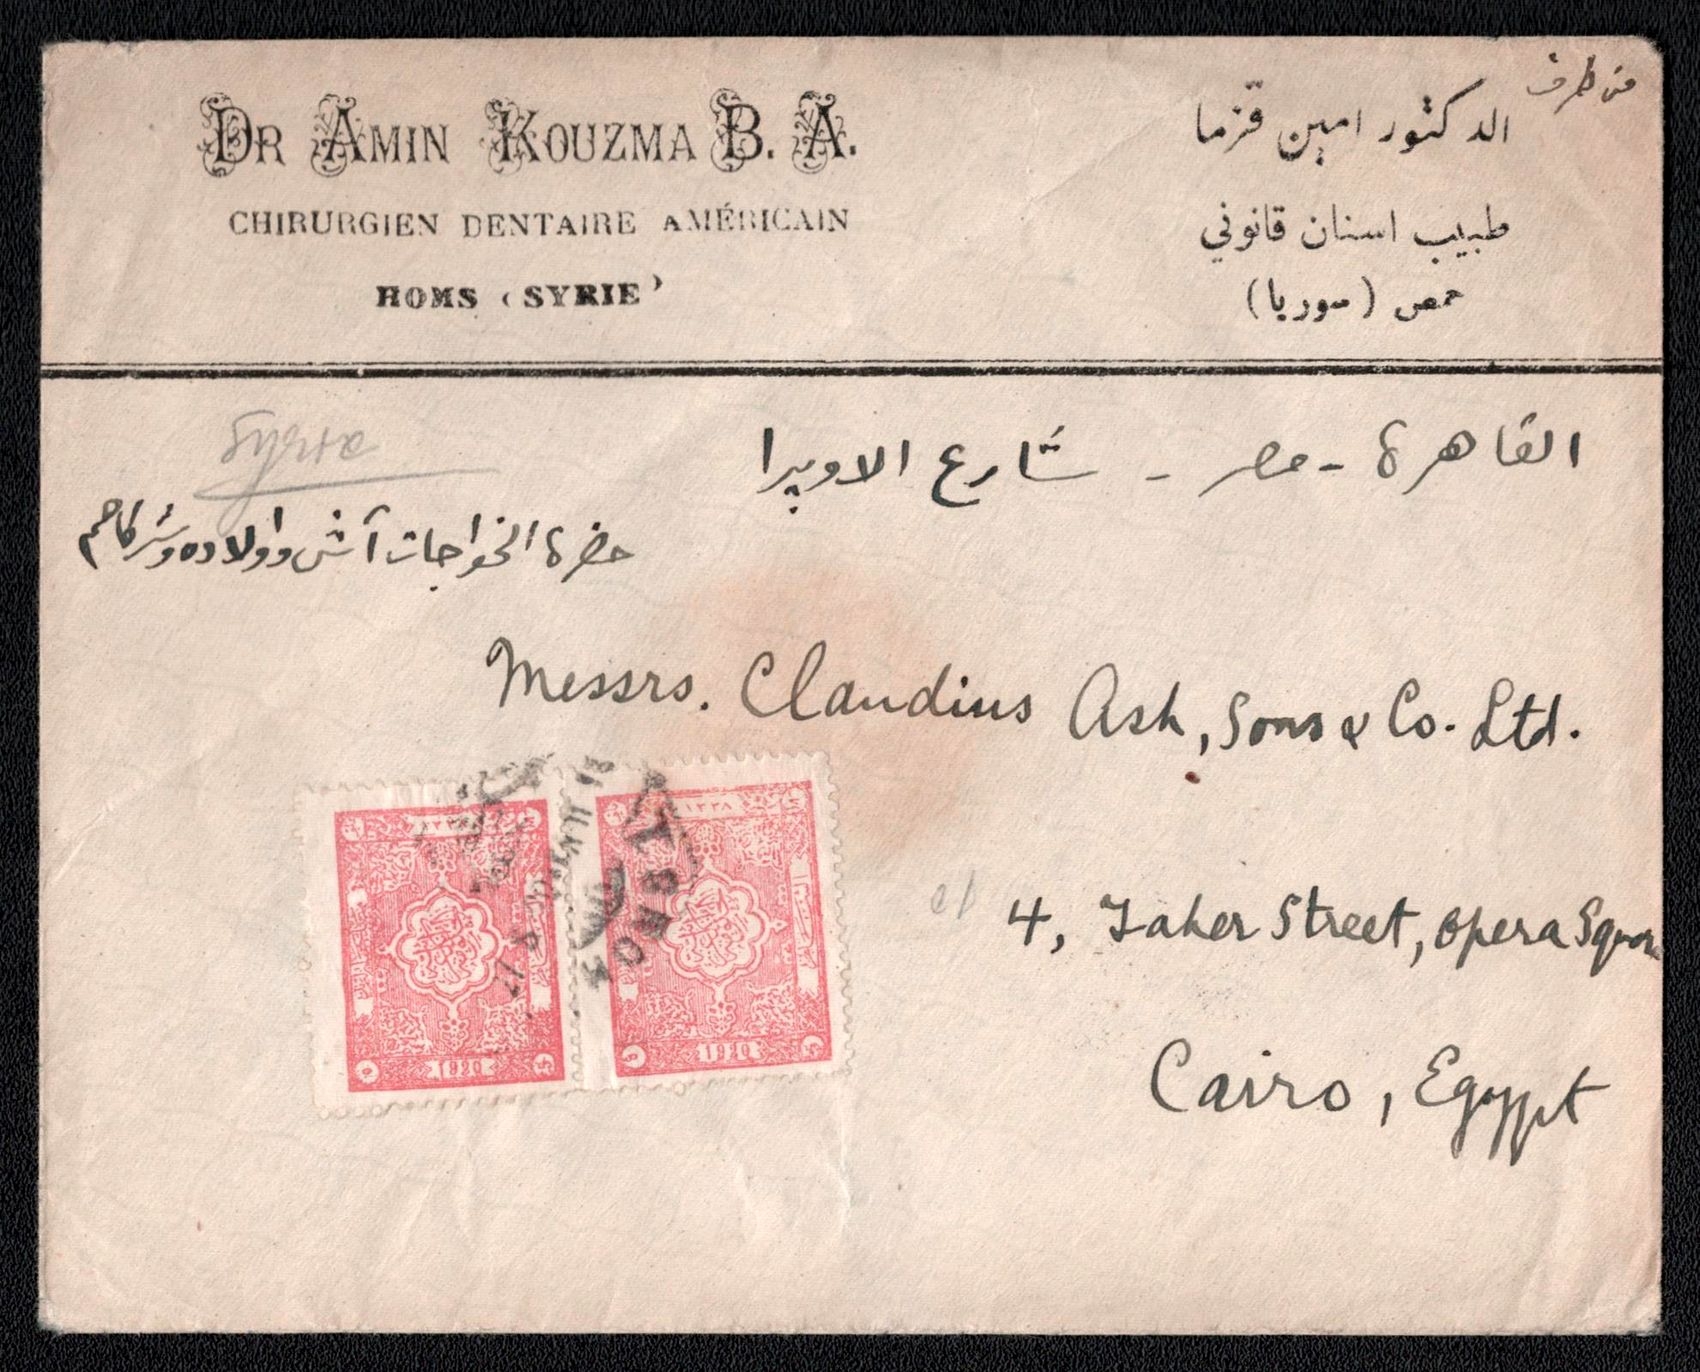 من طرف
DR AMIN KOUZMA B. A.
الدكتور امين قزما
CHIRURGIEN DENTAIRE AMÉRICAIN
طبيب اسنان قانوني
HOMS (SYRIE)
حمص (سوريا)
Syrie
القاهرة - مصر - شارع الاوپرا
حضرة الخواجات آش واولاده وشركاهم
Messrs. Claudius Ash, Sons & Co. Ltd.
4, Taher Street, Opera Square
Cairo, Egypt
١٣٣٨
٥